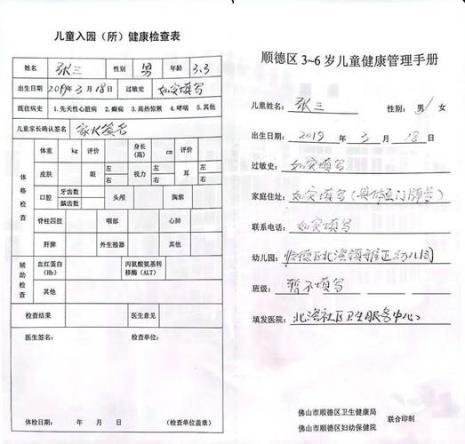 儿童入园（所）健康检查表
姓名 张三 性别 男 年龄 3.3
出生日期 2019年3月18日 过敏史 如实填写
既往病史 1.先天性心脏病 2.癫痫 3.高热惊厥 4.哮喘 5.其他
儿童家长确认签名 家长签名
体格检查
体重 kg 评价 身长（高） cm 评价
皮肤 眼 左 右 视力 左 右 耳 左 右
口腔 牙齿数 龋齿数 头颅 胸廓
脊柱四肢 咽部 心肺
肝脾 外生殖器 其他
辅助检查
血红蛋白（Hb） 丙氨酸氨基转移酶（ALT）
其他
检查结果 医生意见
医生签名： 检查单位：
体检日期： 年 月 日 （检查单位盖章）
顺德区3~6岁儿童健康管理手册
儿童姓名： 张三 性别： 男/女
出生日期： 2019年3月18日
过敏史： 如实填写
家庭住址： 如实填写（具体至门牌号）
联系电话： 如实填写
幼儿园： 顺德区北滘镇雍正幼儿园
班级： 暂不填写
填发医院： 北滘社区卫生服务中心
佛山市顺德区卫生健康局
佛山市顺德区妇幼保健院
联合印制